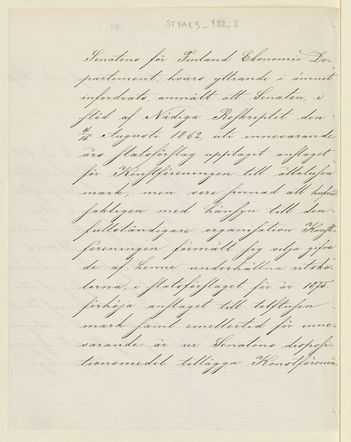 STYAC3_182_2
Senatens för Finland Ekonomie De-
partement, hvars yttrande i ämnet
infordrats, anmält att Senaten, i
stöd af Nådiga Reskriptet den
Augusti 1862, uti innevarande
års statsförslag upptagit anslaget
för Konstföreningen till åttatusen
mark, men vore sinnad att
faktigen med hänsyn till den
fullständigare organisation Konst-
föreningen förmält sig vilja gifva
de af henne underhållna ritsko-
lorna, i statsförslaget för år 1875
förhöja anslaget till tolftusen
mark samt emellertid för inne-
varande år ur Senatens disposi-
tionsmedel tillägga Konstförenin-